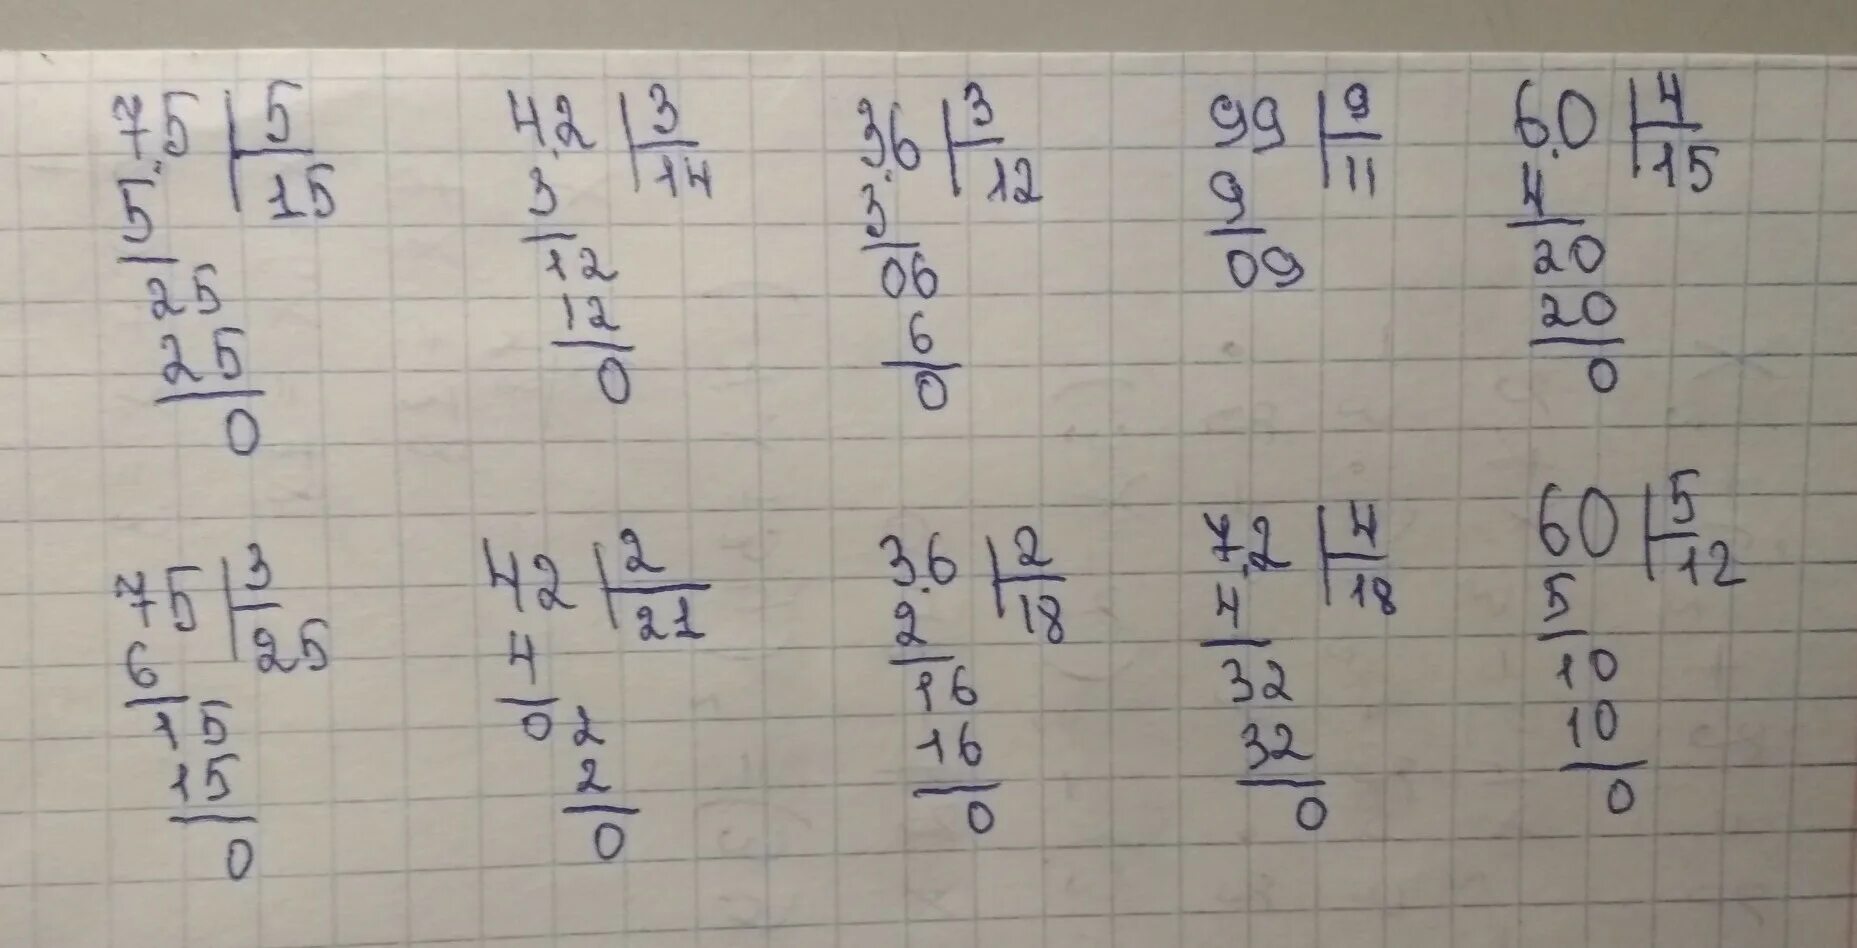 75 5
5 15
25
25
0
42 3
3 14
12
12
0
36 3
3 12
06
6
0
99 9
9 11
09
60 4
4 15
20
20
0
75 3
6 25
15
15
0
42 2
4 21
02
2
0
36 2
2 18
16
16
0
72 4
4 18
32
32
0
60 5
5 12
10
10
0